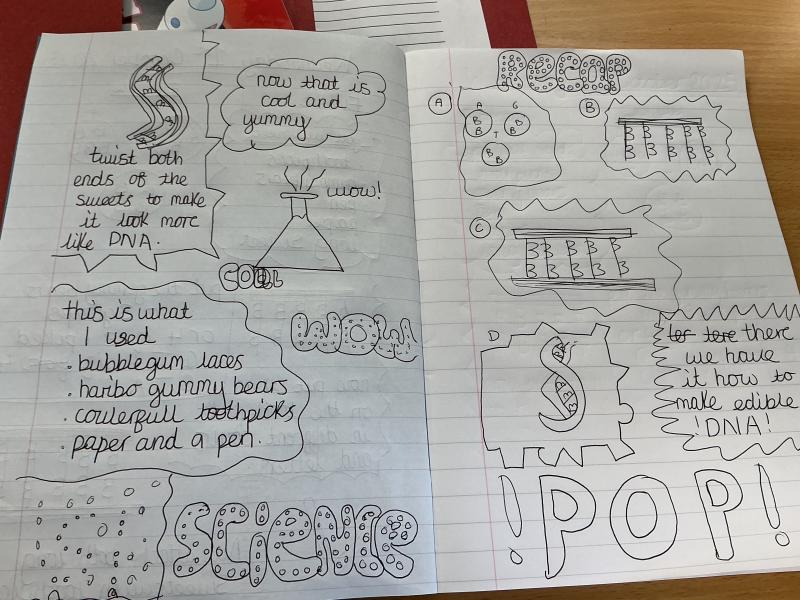 now that is
cool and
yummy
twist both
ends of the
sweets to make
it look more
like DNA.
wow!
COOL
this is what
I used
. bubblegum laces
. haribo gummy bears
. coulerfull toothpicks
. paper and a pen.
WOW
SCIENCE
Recap
A
A G
B B
B B
T
B B
B
B B B B B
B B B B B
C
B B B B B
B B B B B
D
ter tere there
we have
it how to
make edible
!DNA!
! POP!